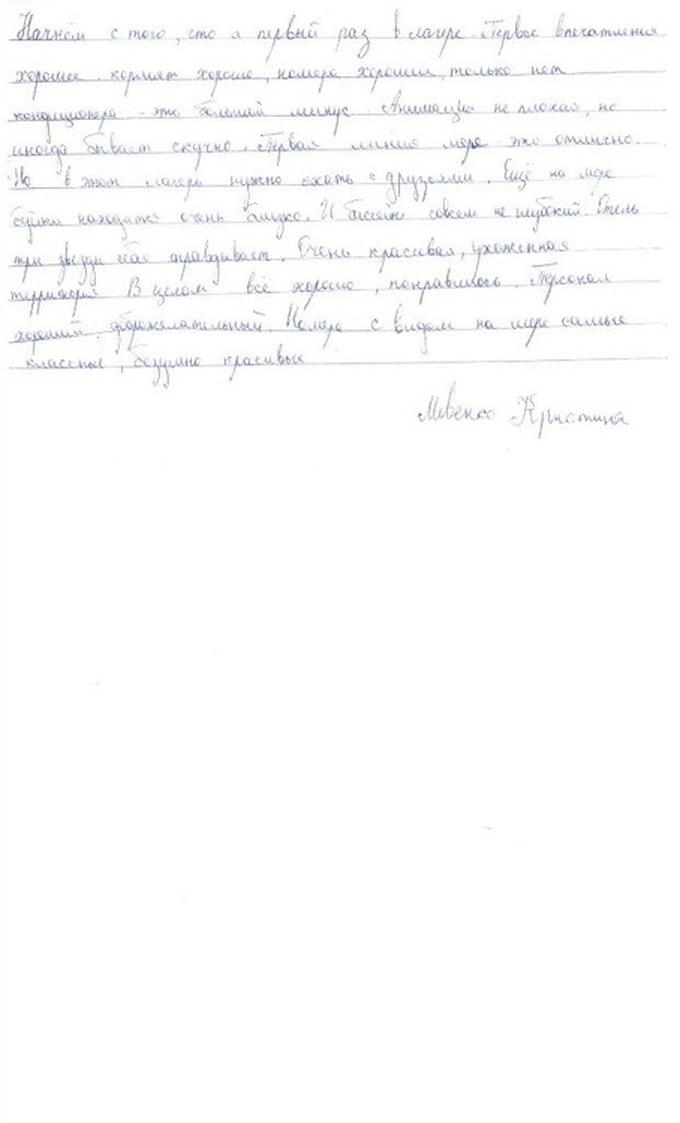 Начнём с того, что я первый раз в лагере. Первое впечатления
хорошее. кормят хорошо, номера хорошии, только нет
кондиционера - это большой минус. Анимация не плохая, но
иногда бывает скучно. Первая линия море - это отлично.
Но в этом лагерь нужно ехать с друзьями. Ещё на море
буйки находятся очень близко. И бассейн совсем не глубокий. Отель
три звезды себя оправдывает. Очень красивая, ухоженная
территория В целом всё хорошо, понравилось. Персонал
хороший, доброжелательный. Номера с видом на море самые
классные, безумно красивые
Кристина